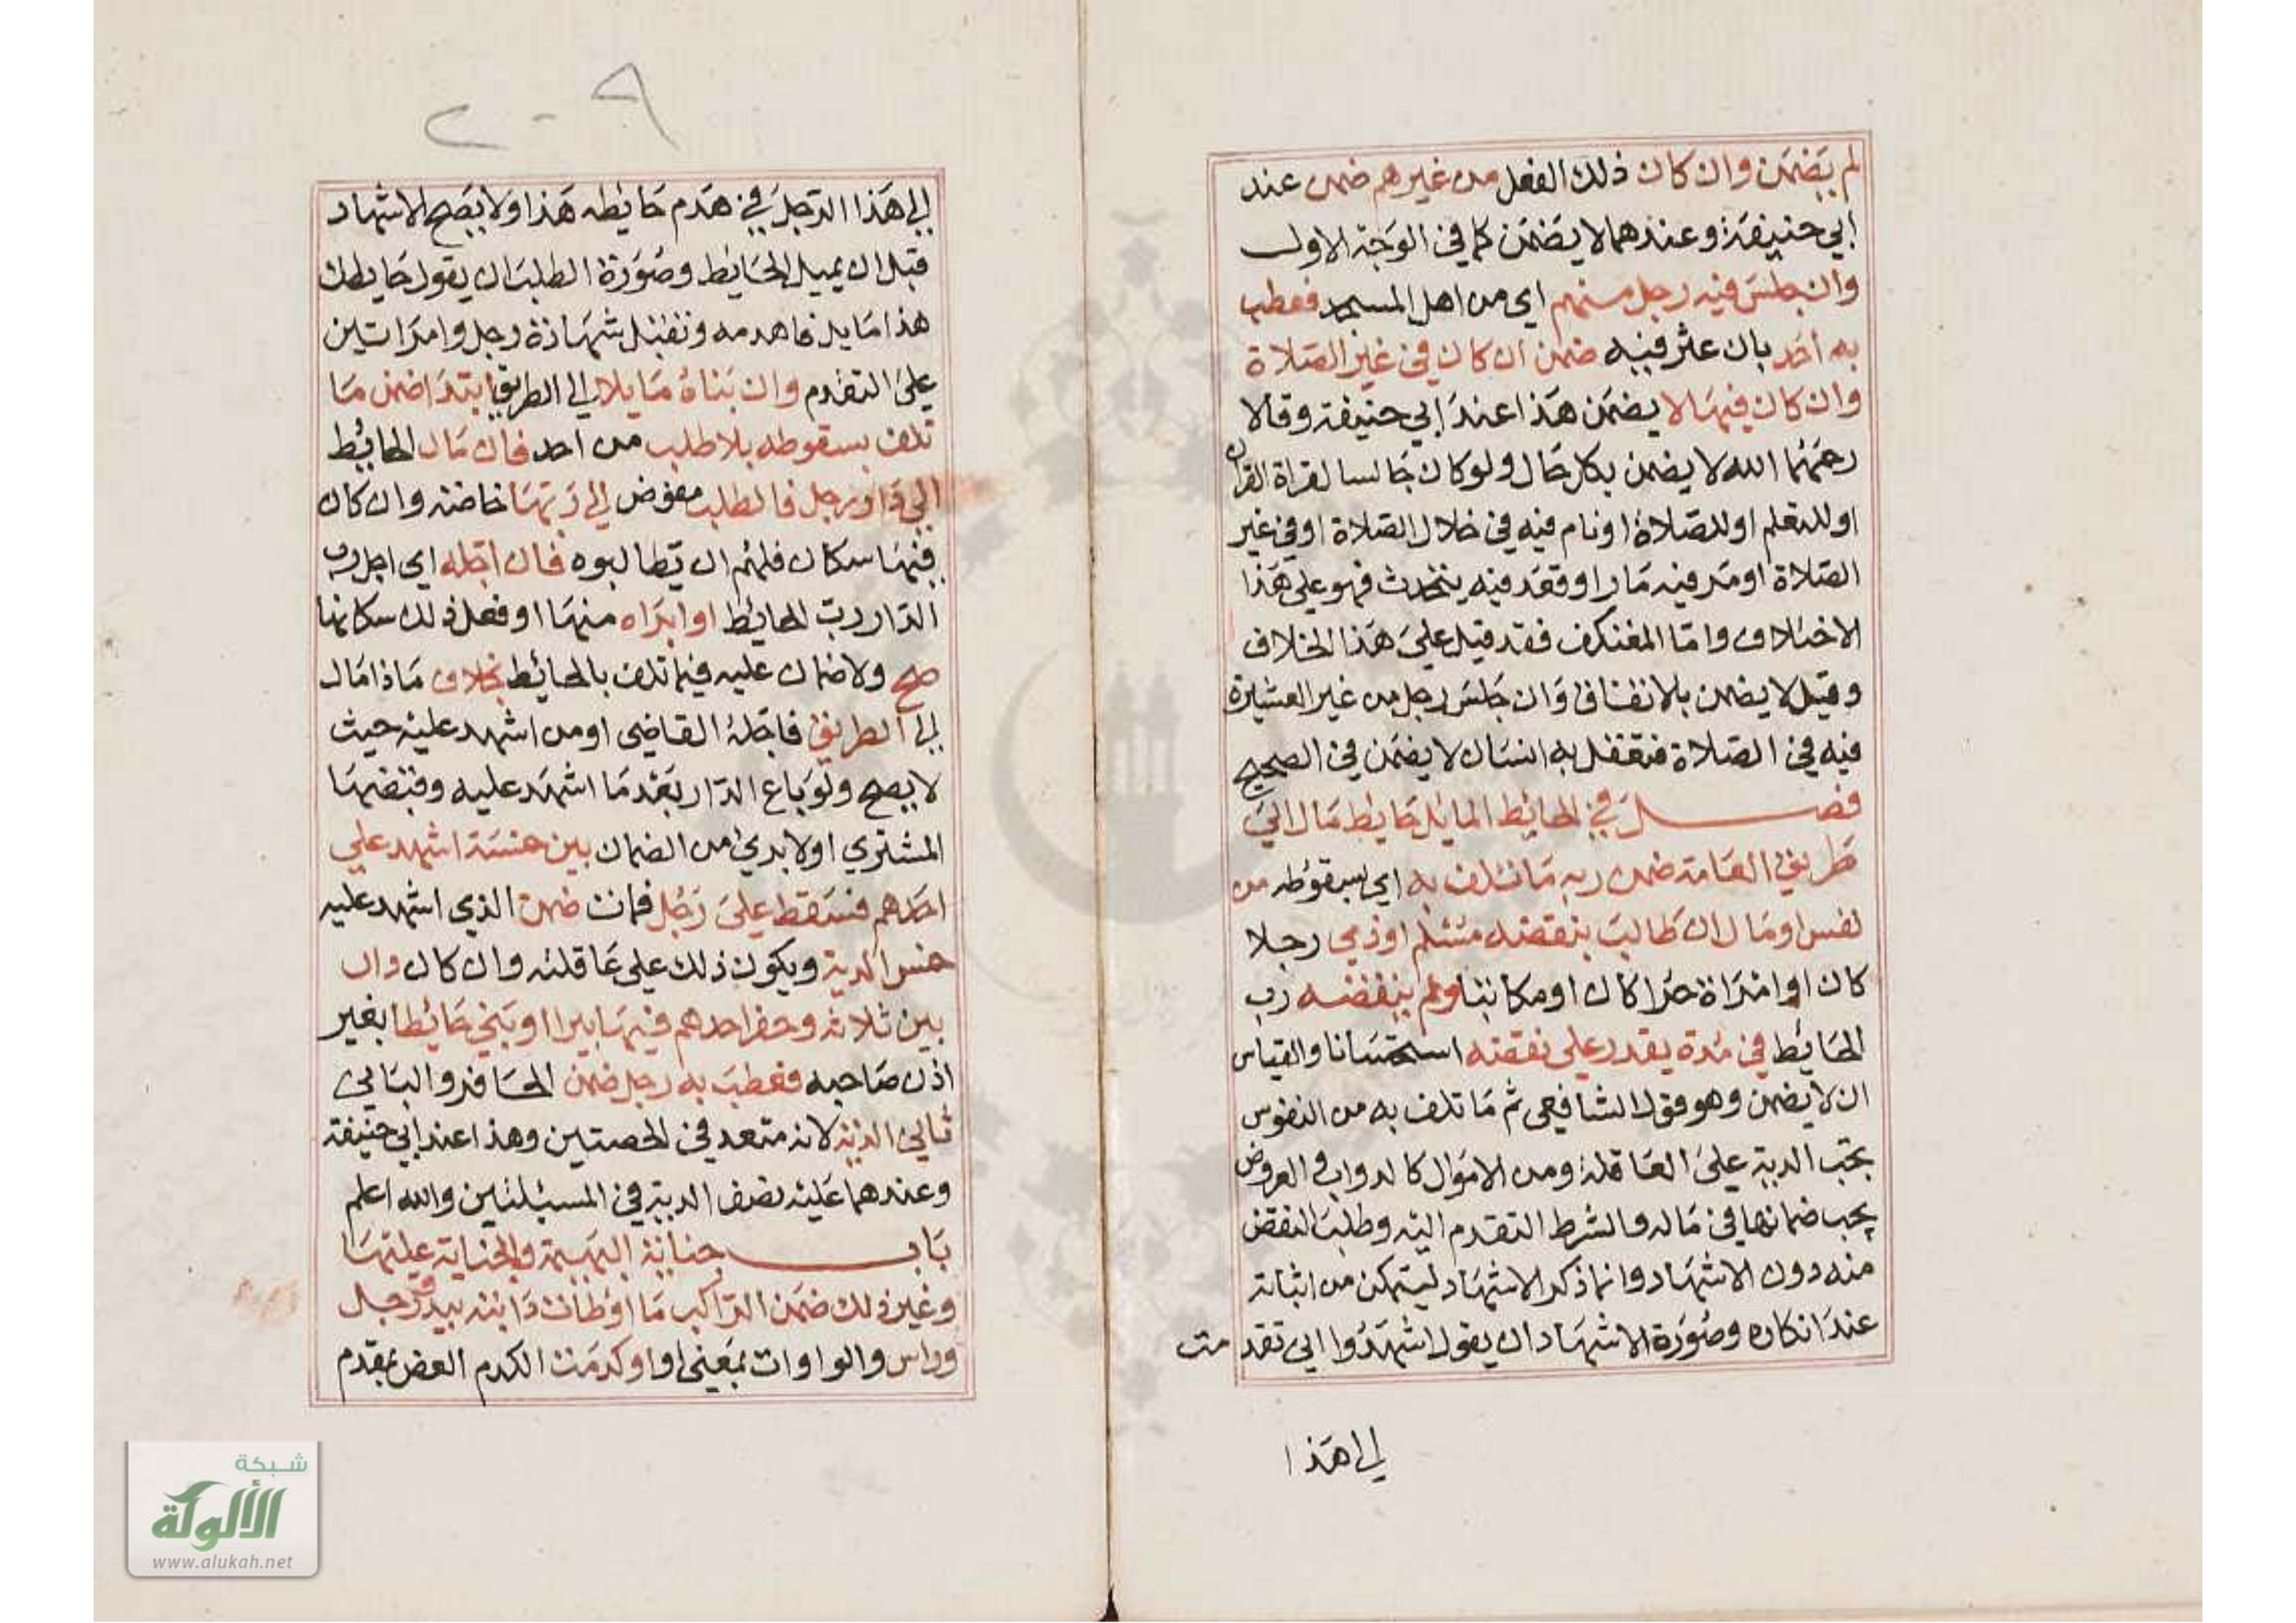 لم يضمن وان كان ذلك الفعل من غيرهم ضمن عند
ابي حنيفة وعندهما لا يضمن كما في الوجه الاول
وان جلس فيه رجل منهم اي من اهل المسجد فعطب
به احد بان عثر فيه ضمن ان كان في غير الصلاة
وان كان فيها لا يضمن هذا عند ابي حنيفة وقالا
رحمهما الله لا يضمن بكل حال ولو كان جالسا لقراة القران
او للتعلم او للصلاة او نام فيه في خلال الصلاة او في غير
الصلاة او مر فيه مارا او قعد فيه يتحدث فهو على هذا
الاختلاف واما المعتكف فقد قيل على هذا الخلاف
وقيل لا يضمن بالاتفاق وان جلس رجل من غير العشيرة
فيه في الصلاة فتعقل به انسان لا يضمن في الصحيح
فصل في الحائط المائل حايط مال الى
طريق العامة ضمن ربه ما تلف به اي بسقوطه من
نفس او مال ان طالب بنقضه مسلم او ذمي رجلا
كان او امراة حرا كان او مكاتبا ولم ينقضه رب
الحائط في مدة يقدر على نقضه استحسانا والقياس
ان لا يضمن وهو قول الشافعي ثم ما تلف به من النفوس
يجب الدية على العاقلة ومن الاموال كالدواب والعروض
يجب ضمانها في ماله والشرط التقدم اليه وطلب النقض
منه دون الاشهاد وانما ذكر الاشهاد ليتمكن من اثباته
عند انكاره وصورة الاشهاد ان يقول اشهدوا اني تقدمت
الى هذا
٢٠٩
الى هذا الرجل في هدم حايطه هذا ولا يصح الاشهاد
قبل ان يميل الحايط وصورة الطلب ان يقول حايطك
هذا مايل فاهدمه وتقبل شهادة رجل وامراتين
على التقدم وان بناه مايلا الى الطريق ابتدا ضمن ما
تلف بسقوطه بلا طلب من احد فان مال الحائط
الى دار رجل فالطلب مفوض الى ربها خاصة وان كان
فيها سكان فلهم ان يطالبوه فان اجله اي اجل رب
الدار رب الحائط او ابراه منها او فعل ذلك سكانها
صح ولا ضمان عليه فيما تلف بالحائط بخلاف ما اذا مال
الى الطريق فاجله القاضي او من اشهد عليه حيث
لا يصح ولو باع الدار بعد ما اشهد عليه وقبضها
المشتري اولا بري من الضمان بين خمسة اشهد على
احدهم فسقط على رجل فمات ضمن الذي اشهد عليه
خمس الدية ويكون ذلك على عاقلته وان كان دار
بين ثلاثة وحفر احدهم فيها بيرا او بنى حائطا بغير
اذن صاحبه فعطب به رجل ضمن الحافر والباني
ثلثي الدية لانه متعد في الحصتين وهذا عند ابي حنيفة
وعندهما عليه نصف الدية في المسئلتين والله اعلم
باب جناية البهيمة والجناية عليها
وغير ذلك ضمن الراكب ما اوطات دابته بيد ورجل
وراس والواوات بمعنى او او كدمت الكدم العض بمقدم
شبكة
الألوكة
www.alukah.net